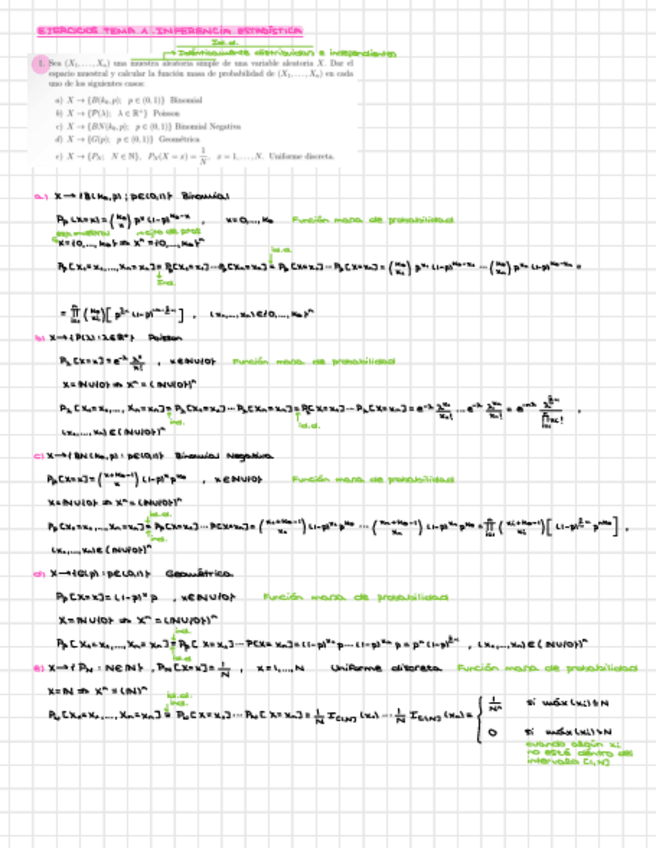 EJERCICIOS TEMA 1. INFERENCIA ESTADÍSTICA
i.d.d.
Idénticamente distribuidas e independientes
1. Sea (X₁, ..., Xₙ) una muestra aleatoria simple de una variable aleatoria X. Dar el
espacio muestral y calcular la función masa de probabilidad de (X₁, ..., Xₙ) en cada
uno de los siguientes casos:
a) X → {B(k₀, p); p ∈ (0, 1)} Binomial
b) X → {P(λ); λ ∈ ℝ⁺} Poisson
c) X → {BN(k₀, p); p ∈ (0, 1)} Binomial Negativa
d) X → {G(p); p ∈ (0, 1)} Geométrica
e) X → {P_N; N ∈ ℕ}, P_N(X = x) = 1/N, x = 1, ..., N. Uniforme discreta.
a) X → {B(k₀,p) : p∈(0,1)} Binomial
Pₚ[X=x] = (k₀ x) pˣ (1-p)^(k₀-x) , x=0,...,k₀ Función masa de probabilidad
X={0,...,k₀} ⇒ Xⁿ={0,...,k₀}ⁿ
Pₚ[X₁=x₁,...,Xₙ=xₙ] = Pₚ[X₁=x₁]...Pₚ[Xₙ=xₙ] = Pₚ[X=x₁]...Pₚ[X=xₙ] = (k₀ x₁) p^x₁ (1-p)^(k₀-x₁) ... (k₀ xₙ) p^xₙ (1-p)^(k₀-xₙ) =
ind.
, (x₁,...,xₙ)∈{0,...,k₀}ⁿ
b) X → {P(λ) : λ∈ℝ⁺} Poisson
P_λ[X=x] = e^-λ λˣ/x! , x∈ℕ∪{0} Función masa de probabilidad
X=ℕ∪{0} ⇒ Xⁿ=(ℕ∪{0})ⁿ
P_λ[X₁=x₁,..., Xₙ=xₙ] = P_λ[X₁=x₁]...P_λ[Xₙ=xₙ] = P_λ[X=x₁]...P_λ[X=xₙ] = e^-λ λ^x₁/x₁! ... e^-λ λ^xₙ/xₙ! = e^-nλ λ^(Σxᵢ)/∏xᵢ! ,
ind. i.d.
(x₁,...,xₙ)∈(ℕ∪{0})ⁿ
c) X → {BN(k₀,p) : p∈(0,1)} Binomial Negativa
Pₚ[X=x] = (x+k₀-1 x) (1-p)ˣ p^k₀ , x∈ℕ∪{0} Función masa de probabilidad
X=ℕ∪{0} ⇒ Xⁿ=(ℕ∪{0})ⁿ
i.d.
Pₚ[X₁=x₁,...,Xₙ=xₙ] = Pₚ[X=x₁]...P[X=xₙ] = (x₁+k₀-1 x₁) (1-p)^x₁ p^k₀ ... (xₙ+k₀-1 xₙ) (1-p)^xₙ p^k₀ =
ind.
(x₁,...,xₙ)∈(ℕ∪{0})ⁿ
d) X → {G(p) : p∈(0,1)} Geométrica
Pₚ[X=x] = (1-p)ˣ p , x∈ℕ∪{0} Función masa de probabilidad
X=ℕ∪{0} ⇒ Xⁿ=(ℕ∪{0})ⁿ
ind.
Pₚ[X₁=x₁,...,Xₙ=xₙ] = Pₚ[X=x₁]...P[X=xₙ] = (1-p)^x₁ p...(1-p)^xₙ p = pⁿ(1-p)^(Σxᵢ) , (x₁,...,xₙ)∈(ℕ∪{0})ⁿ
i.d.
e) X → {P_N : N∈ℕ}, P_N[X=x] = 1/N , x=1,...,N Uniforme discreta Función masa de probabilidad
X=ℕ ⇒ Xⁿ=(ℕ)ⁿ
i.d.
ind.
P_N[X₁=x₁,..., Xₙ=xₙ] = P_N[X=x₁]...P_N[X=xₙ] = 1/N I_[1,N](x₁)...1/N I_[1,N](xₙ) = { 1/Nⁿ si máx(xᵢ)≤N
0 si máx(xᵢ)>N
cuando algún xᵢ
no está dentro del
intervalo [1,N]